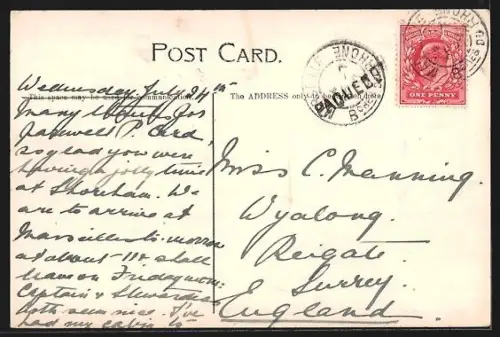 POST CARD.
Wednesday July 24th
This space may be used for communication.
The ADDRESS only to be
many thanks for
farewell P. Card,
so glad you were
having a jolly time
at Shoreham. We
are to arrive at
Marseilles to-morrow
at about 11. shall
leave on Friday morn:
Captain & Stewardess
both seem nice. I've
had my cabin to
Miss C. Manning.
Wyalong.
Reigate.
Surrey.
England.
PAQUEBOT
RHONE
ONE PENNY
RHONE